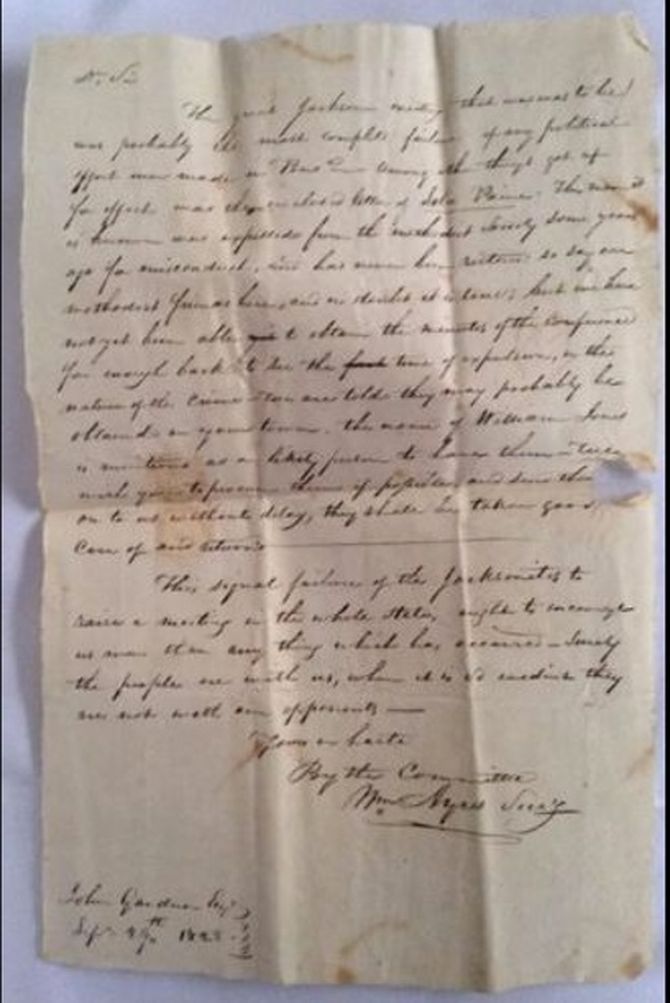 Dr Sir
The great Jackson meeting that was was to be
was probably the most complete failure of any political
effort ever made in among other things got up
for effect was the enclosed letter of The man it
is known was expelled from the methodist society some years
ago for misconduct, and has never been restored so say our
methodist friends here, and no doubt it is true, but we have
not yet been able to obtain the minutes of the conference
far enough back to see the time of expulsion, or the
nature of the crime we are told they may probably be
obtained in your town. the name of William Jones
is mentioned as a likely person to have them
wish you to procure them if possible, and send them
on to us without delay, they shall be taken good
care of and returned
This signal failure of the Jacksonites to
raise a meeting in the whole state, ought to encourage
us more than any thing which has occurred – Surely
the people are with us, when it is so evident they
are not with our opponents —
Yours in haste
By the Committee
Wm Ayres Secy
John Gardner Esqr
Sepr 29th 1828